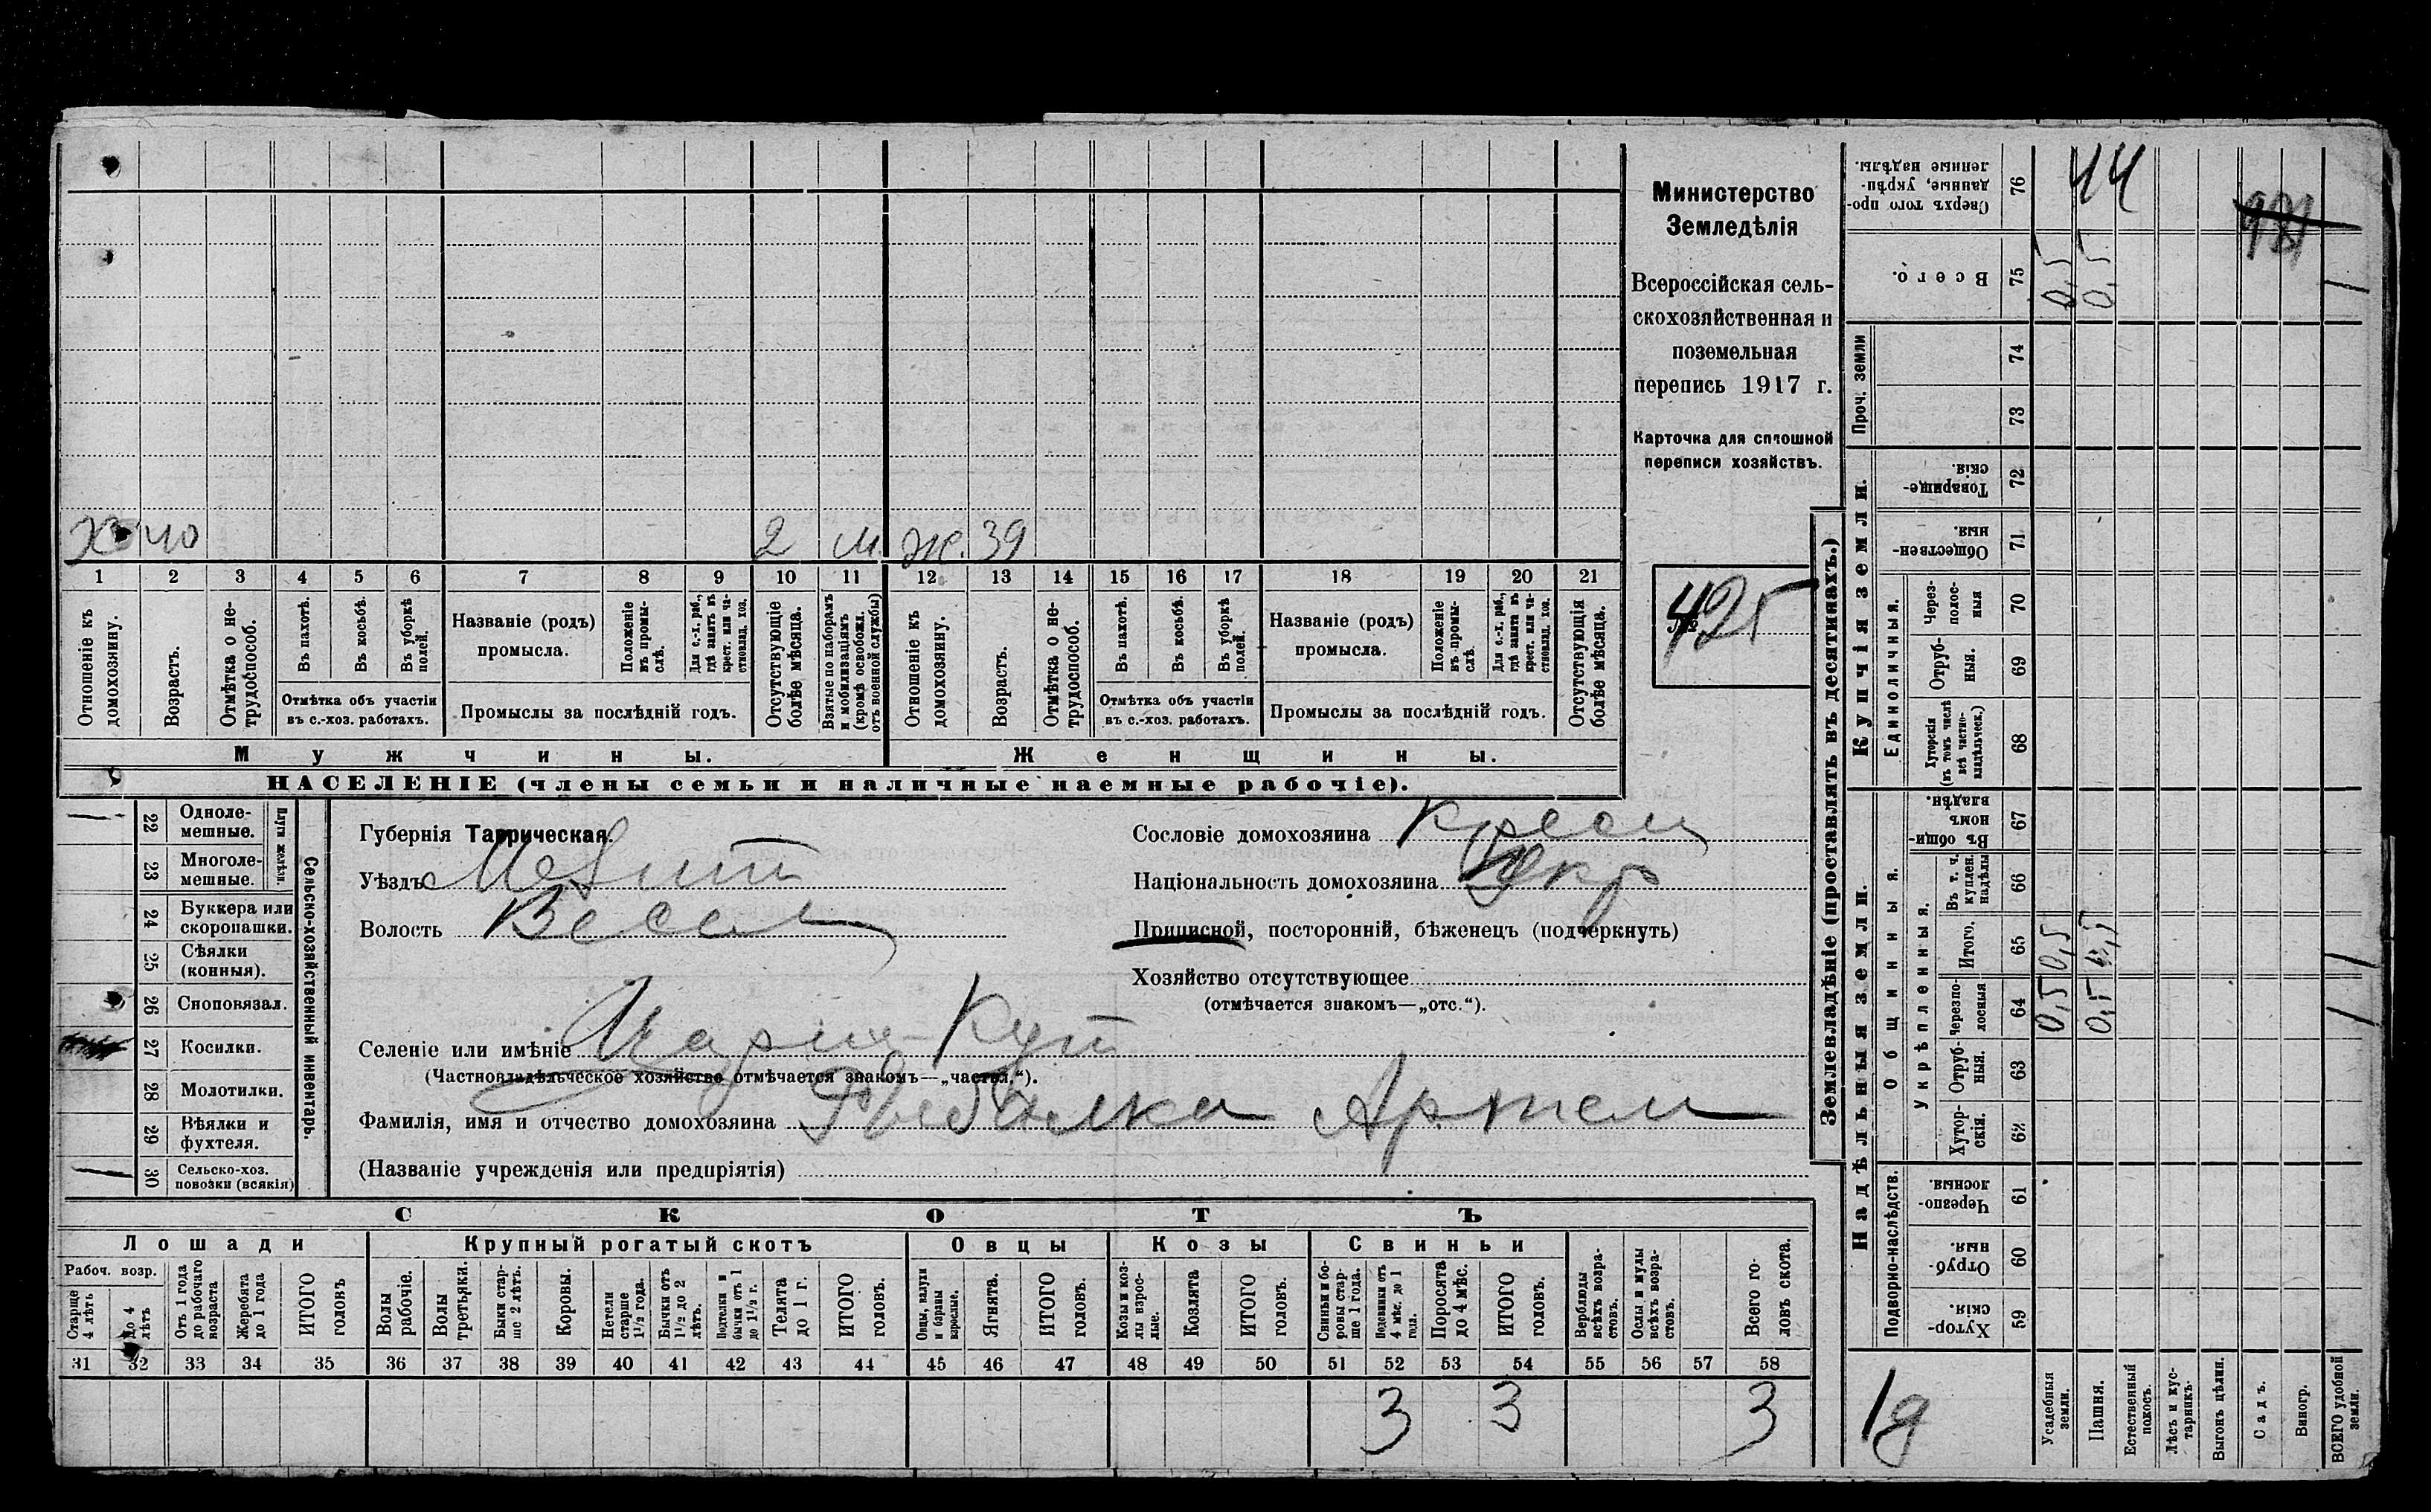 Х 40 2 м. ж. 39
1 2 3 4 5 6 7 8 9 10 11 12 13 14 15 16 17 18 19 20 21
Отношеніе къ домохозяину.
Возрастъ.
Отмѣтка о не-трудоспособ.
Въ пахотѣ.
Въ косьбѣ.
Въ уборкѣ полей.
Отмѣтка объ участіи
въ с.-хоз. работахъ.
Названіе (родъ)
промысла.
Положеніе въ промы-слѣ.
Для с.-х. раб., гдѣ занятъ въ крест. или ча-стновлад. хоз.
Промыслы за послѣдній годъ.
Отсутствующіе болѣе мѣсяца.
Взятые по наборамъ и мобилизаціямъ (кромѣ освобожд. отъ военной службы)
Отношеніе къ домохозяину.
Возрастъ.
Отмѣтка о не-трудоспособ.
Въ пахотѣ.
Въ косьбѣ.
Въ уборкѣ полей.
Отмѣтка объ участіи
въ с.-хоз. работахъ.
Названіе (родъ)
промысла.
Положеніе въ промы-слѣ.
Для с.-х. раб., гдѣ занята въ крест. или ча-стновлад. хоз.
Промыслы за послѣдній годъ.
Отсутствующія болѣе мѣсяца.
Мужчины.
Женщины.
НАСЕЛЕНІЕ (члены семьи и наличные наемные рабочіе).
Министерство
Земледѣлія
Всероссійская сель-
скохозяйственная и
поземельная
перепись 1917 г.
Карточка для сплошной
переписи хозяйствъ.
№ 425
Сельско-хозяйственный инвентарь.
Плуги желѣзн.
22 Одноле-мешные.
23 Многоле-мешные.
24 Буккера или скоропашки.
25 Сѣялки (конныя).
26 Сноповязал.
27 Косилки.
28 Молотилки.
29 Вѣялки и фухтеля.
30 Сельско-хоз. повозки (всякія)
Губернія Таврическая.
Уѣздъ Мелит
Волость Весел
Сословіе домохозяина крест
Національность домохозяина Укр
Приписной, посторонній, бѣженецъ (подчеркнуть)
Хозяйство отсутствующее
(отмѣчается знакомъ—„отс.“).
Селеніе или имѣніе Кут
(Частновладѣльческое хозяйство отмѣчается знакомъ—„частвл.“).
Фамилія, имя и отчество домохозяина Рыбалка Артем
(Названіе учрежденія или предпріятія)
СКОТЪ
Лошади
Крупный рогатый скотъ
Овцы
Козы
Свиньи
Рабоч. возр.
Старше 4 лѣтъ
До 4 лѣтъ
Отъ 1 года до рабочаго возраста
Жеребята до 1 года
ИТОГО головъ
Волы рабочіе.
Волы третьяки.
Быки стар-ше 2 лѣтъ.
Коровы.
Нетели старше 1½ года.
Бычки отъ 1½ до 2 лѣтъ.
Подтелки и бычки отъ 1 до 1½ г.
Телята до 1 г.
ИТОГО головъ.
Овцы, валухи и бараны взрослые.
Ягнята.
ИТОГО головъ.
Козы и коз-лы взрос-лые.
Козлята
ИТОГО головъ.
Свиньи и бо-ровы стар-ше 1 года.
Подсвинки отъ 4 мѣс. до 1 года.
Поросята до 4 мѣс.
ИТОГО головъ.
Верблюды всѣхъ возра-стовъ.
Ослы и мулы всѣхъ возра-стовъ.
Всего го-ловъ скота.
31 32 33 34 35 36 37 38 39 40 41 42 43 44 45 46 47 48 49 50 51 52 53 54 55 56 57 58
3 3 3
Землевладѣніе (проставлять въ десятинахъ.)
Сверхъ того про-данные, укрѣп-ленные надѣлы. 76
44
Всего. 75 0,5 0,5 1
Проч. земли
74
73
Купчія земли.
Товарище-скія. 72
Обществен-ныя 71
Единоличныя.
Через-полос-ныя 70
Отруб-ныя. 69
Хуторскія (въ томъ числѣ всѣ частно-владѣльчек.) 68
Надѣльныя земли.
Общинныя.
Въ общи-номъ владѣн. 67
Укрѣпленныя.
Въ т. ч. куплен. надѣлы 66
Итого, 65 0,5 1
Черезпо-лосныя 64 0,5 0,5 1
Отруб-ныя. 63
Хутор-скія. 62
Подворно-наслѣдств.
Черезпо-лосныя. 61
Отруб-ныя. 60
Хутор-скія. 59
1д
Усадебныя земли.
Пашня.
Естественный покосъ.
Лѣсъ и кус-тарникъ.
Выгонъ цѣлин.
Садъ.
Виногр.
ВСЕГО удобной земли.